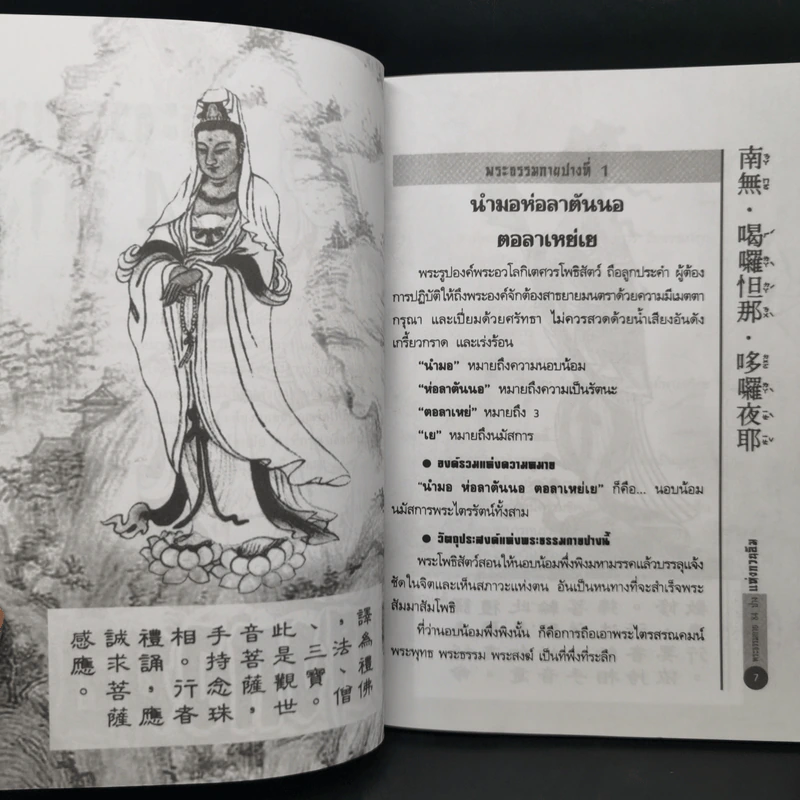 譯為禮佛
，法、僧
、三寶。
此是觀世
音菩薩，
手持念珠
相。行者
禮誦，應
誠求菩薩
感應。
พระธรรมกายปางที่ 1
นำมอห่อลาตันนอ
ตอลาเหย่เย
พระรูปองค์พระอวโลกิเตศวรโพธิสัตว์ ถือลูกประคำ ผู้ต้อง
การปฏิบัติให้ถึงพระองค์จักต้องสาธยายมนตราด้วยความมีเมตตา
กรุณา และเปี่ยมด้วยศรัทธา ไม่ควรสวดด้วยน้ำเสียงอันดัง
เกรี้ยวกราด และเร่งร้อน
“นำมอ” หมายถึงความนอบน้อม
“ห่อลาตันนอ” หมายถึงความเป็นรัตนะ
“ตอลาเหย่” หมายถึง 3
“เย” หมายถึงนมัสการ
● องค์รวมแห่งความหมาย
“นำมอ ห่อลาตันนอ ตอลาเหย่เย” ก็คือ... นอบน้อม
นมัสการพระไตรรัตน์ทั้งสาม
● วัตถุประสงค์แห่งพระธรรมกายปางนี้
พระโพธิสัตว์สอนให้นอบน้อมพึ่งพิงมหามรรคแล้วบรรลุแจ้ง
ชัดในจิตและเห็นสภาวะแห่งตน อันเป็นหนทางที่จะสำเร็จพระ
สัมมาสัมโพธิ
ที่ว่านอบน้อมพึ่งพิงนั้น ก็คือการถือเอาพระไตรสรณคมน์
พระพุทธ พระธรรม พระสงฆ์ เป็นที่พึ่งที่ระลึก
南無·喝囉怛那·哆囉夜耶
7